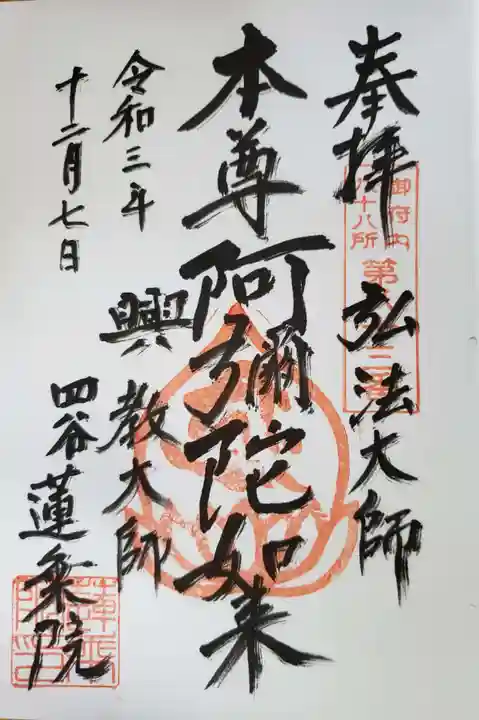 奉拝
弘法大師
本尊阿彌陀如来
興教大師
令和三年
十二月七日
四谷蓮乗院
御府内
八十八所
第